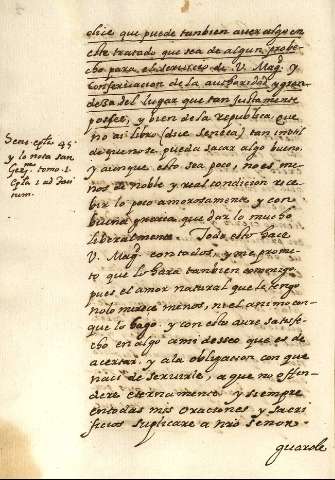 dice que puede tambien aver algo en
este tratado que sea de algun probe-
cho para el servicio de V. Magd. y
Conservacion de la autharidad, y gran
deza del lugar que tan justamente
posee, y bien de la republica, que
no ai libro (dice Seneca) tan inutil
de que no se pueda sacar algo bueno,
y aunque esto sea poco, no es me-
nos de noble y real condicion rece
bir lo poco amorosamente, y con
buena gracia que dar lo mucho
liberalmente. Todo esto hace
V. Magd. con todos, y me prome-
to que lo hara tambien comigo,
pues el amor natural que le tengo
no lo merece menos, ni el animo con
que lo hago. y con esto avre satisfe-
cho en algo a mi desseo que es de
acertar, y a la obligacion con que
naci de servirle, a que no
eternamente y siempre
en todas mis oraciones y sacri-
ficios suplicare a nro Señor.
guarde
Senc. epta. 45
y lo nota san
Germo. tomo. 1.
Epta 1 ad